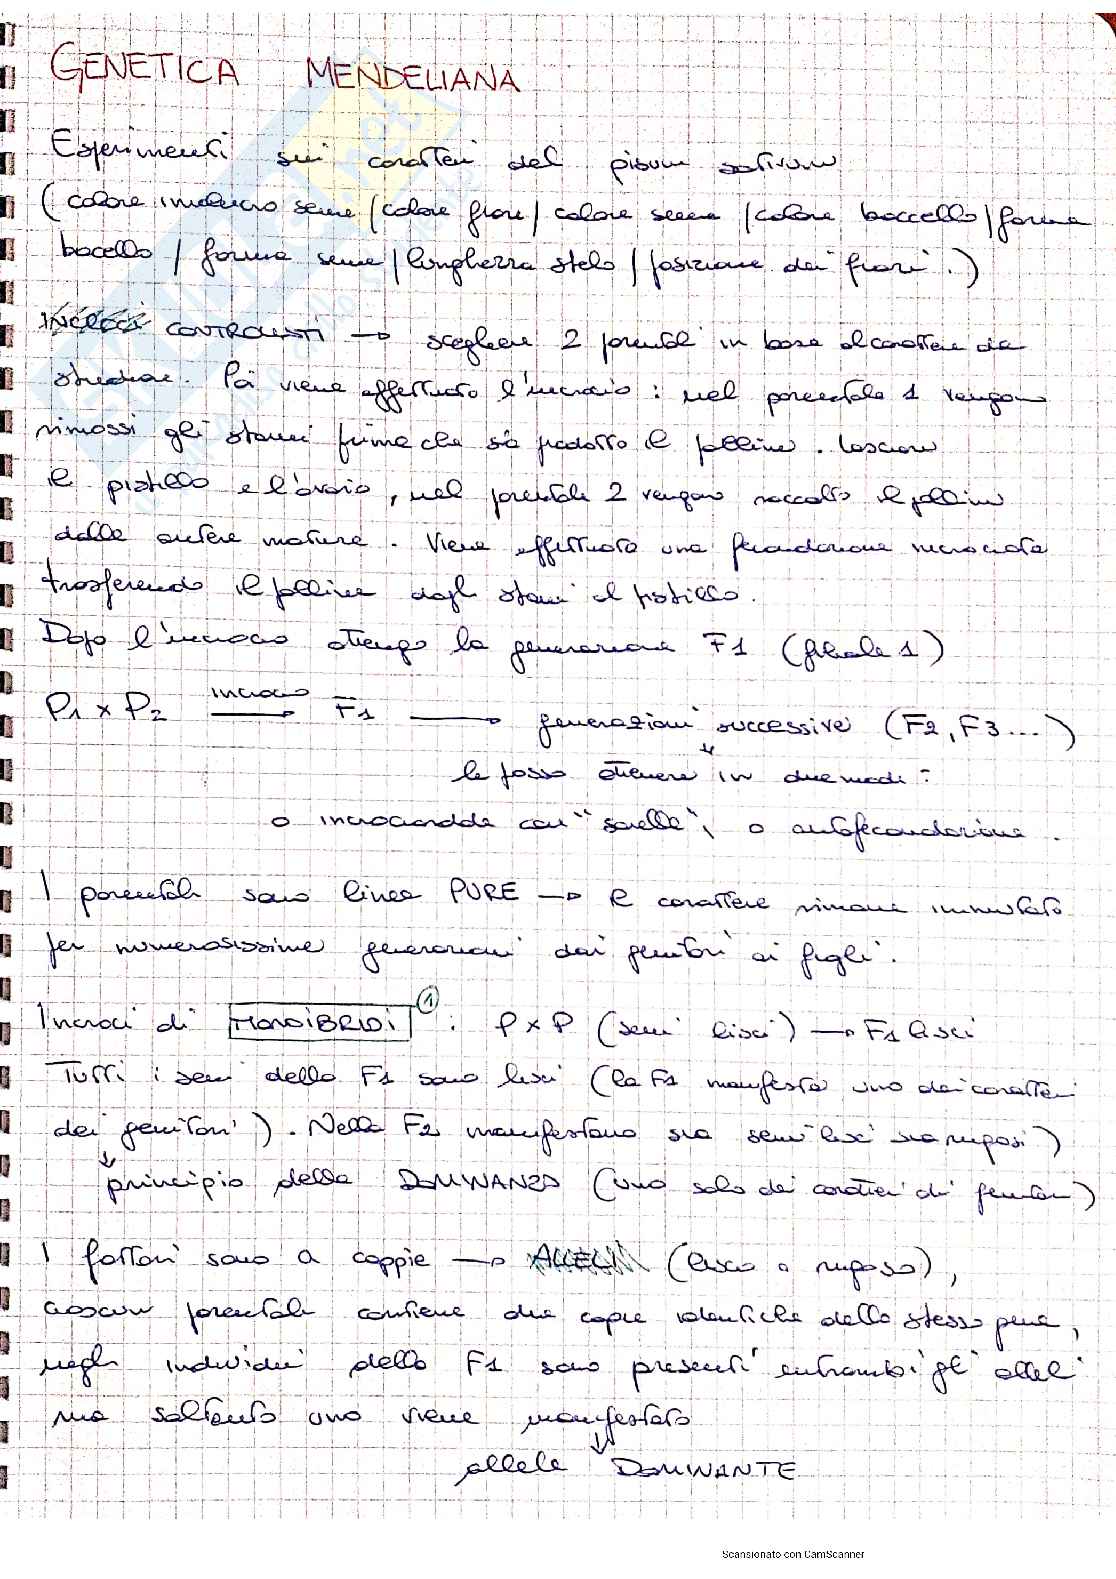 GENETICA MENDELIANA
Esperimenti sui caratteri del pisum sativum
(colore involucro seme / colore fiore / colore seme / colore baccello / forma
bacello / forma seme / lunghezza stelo / posizione dei fiori.)
INCROCI CONTROLLATI → scegliere 2 parentali in base al carattere da
studiare. Poi viene effettuato l'incrocio: nel parentale 1 vengono
rimossi gli stami prima che sia prodotto il polline. lasciare
il pistillo e l'ovaio, nel parentale 2 vengono raccolto il polline
dalle antere mature. Viene effettuata una fecondazione incrociata
trasferendo il polline dagli stami al pistillo.
Dopo l'incrocio ottengo la generazione F1 (filiale 1)
incrocio
P1 x P2 → F1 → generazioni successive (F2, F3...)
le posso ottenere in due modi:
o incrociandole con "sorelle", o autofecondazione.
I parentali sono linee PURE → il carattere rimane immutato
per numerosissime generazioni dai genitori ai figli.
Incroci di MONOIBRIDI ① : P x P (semi lisci) → F1 lisci
Tutti i semi della F1 sono lisci (la F1 manifesta uno dei caratteri
dei genitori). Nella F2 manifestano sia semi lisci sia rugosi)
principio della DOMINANZA (uno solo dei caratteri dei genitori)
I fattori sono a coppie → ALLELI (liscio o rugoso),
ciascun parentale contiene due copie identiche dello stesso gene,
negli individui della F1 sono presenti entrambi gli alleli
ma soltanto uno viene manifestato
allele DOMINANTE
Scansionato con CamScanner